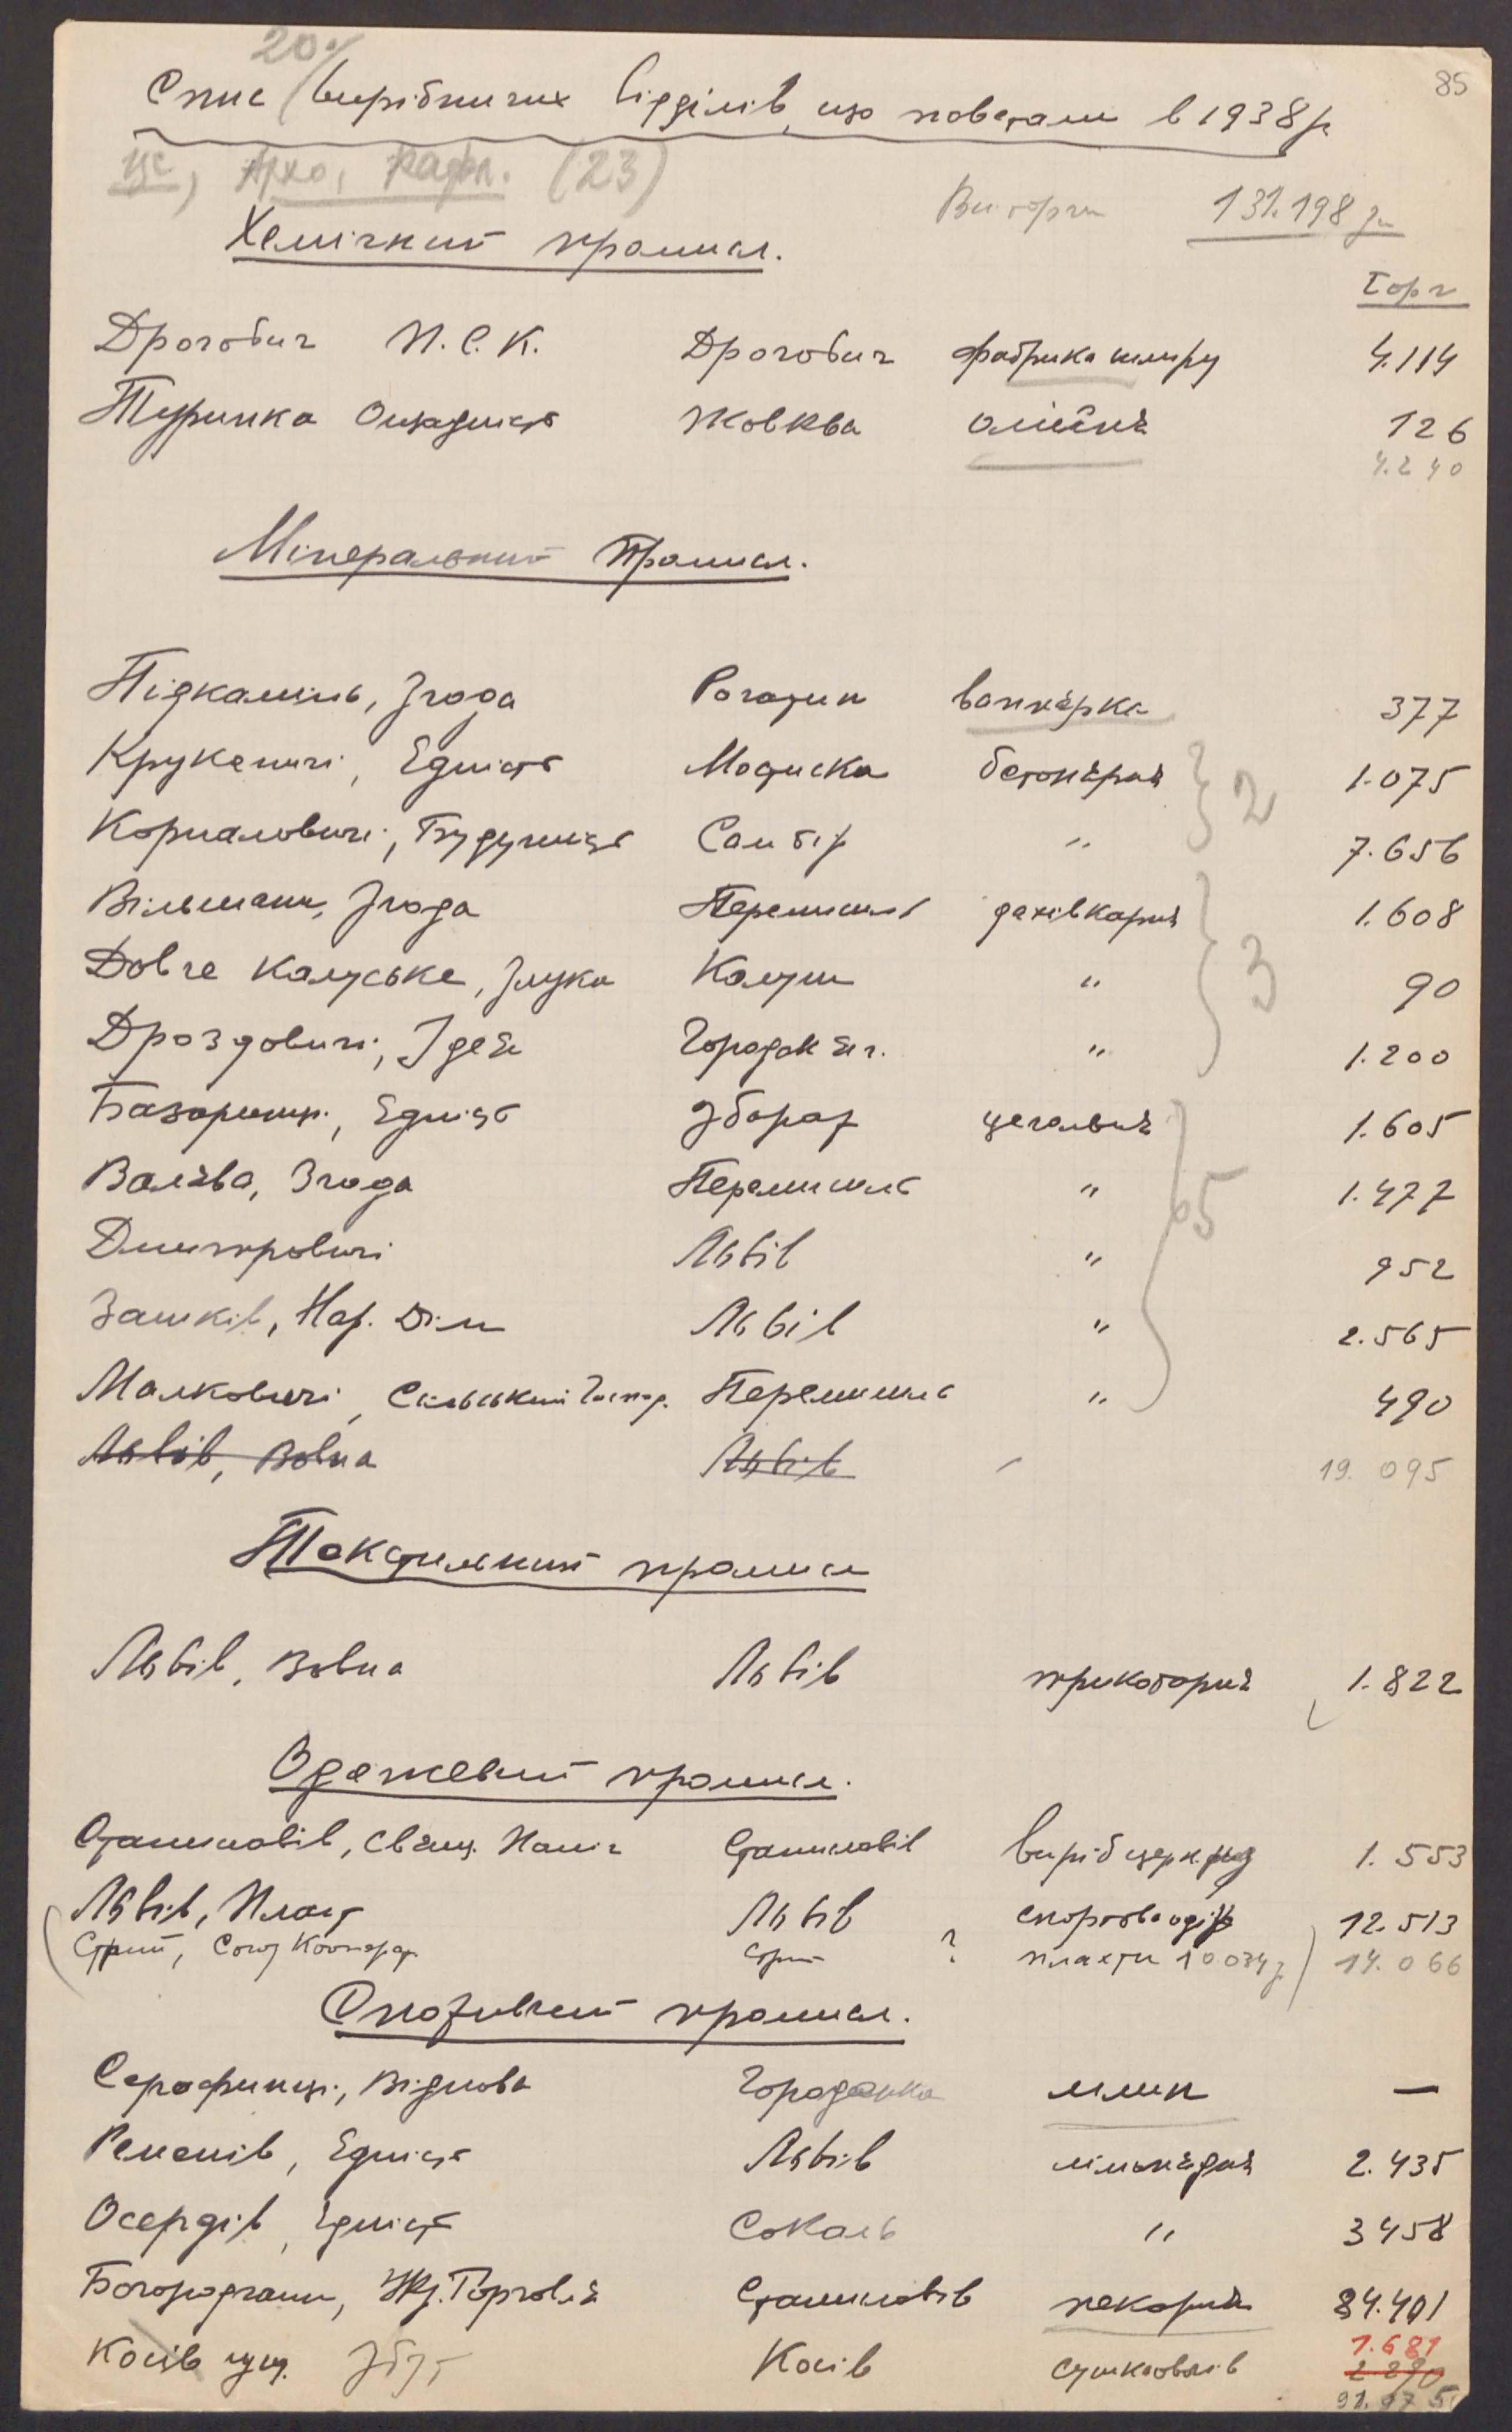 85
20%
Спис виробничих відділів, що повстали в 1938 р
(23)
131.198
Хемічний промисл.
Торг
Дрогобич П.С.К. Дрогобич фабрика шміру 4.114
Туринка Ощадність Жовква олійня 126
4.240
Мінеральний промисл.
Підкамінь, Згода Рогатин вапнярка 377
Крукеничі, Єдність Мостиска бетонярня 1.075
2
Корналовичі, Будучність Самбір " 7.656
Вільшани, Згода Перемишль дахівкарня 1.608
Довге Калуське, Злука Калуш " 90
3
Дроздовичі, Ідея Городок Яг. " 1.200
Базаринці, Єдність Збараж цегольня 1.605
Валява, Згода Перемишль " 1.477
5
Дмитровичі Львів " 952
Зашків, Нар. Дім Львів " 2.565
Малковичі, Сільський Господ. Перемишль " 490
Львів, Вовна Львів 19.095
Текстильний промисл
Львів, Вовна Львів трикотарня 1.822
Одежевий промисл.
Станиславів, Свящ. Поміч Станиславів виріб церк. риз 1.553
Львів, Пласт Львів 12.513
Стрий, Союз Кооперат. Стрий ? 14.066
Споживчий промисл.
Серафинці, Віднова Городенка млин —
Ременів, Єдність Львів лімонадня 2.435
Осердів, Єдність Сокаль " 3458
Богородчани, Торговля Станиславів пекарня 84.401
1.681
Косів Косів 2.290